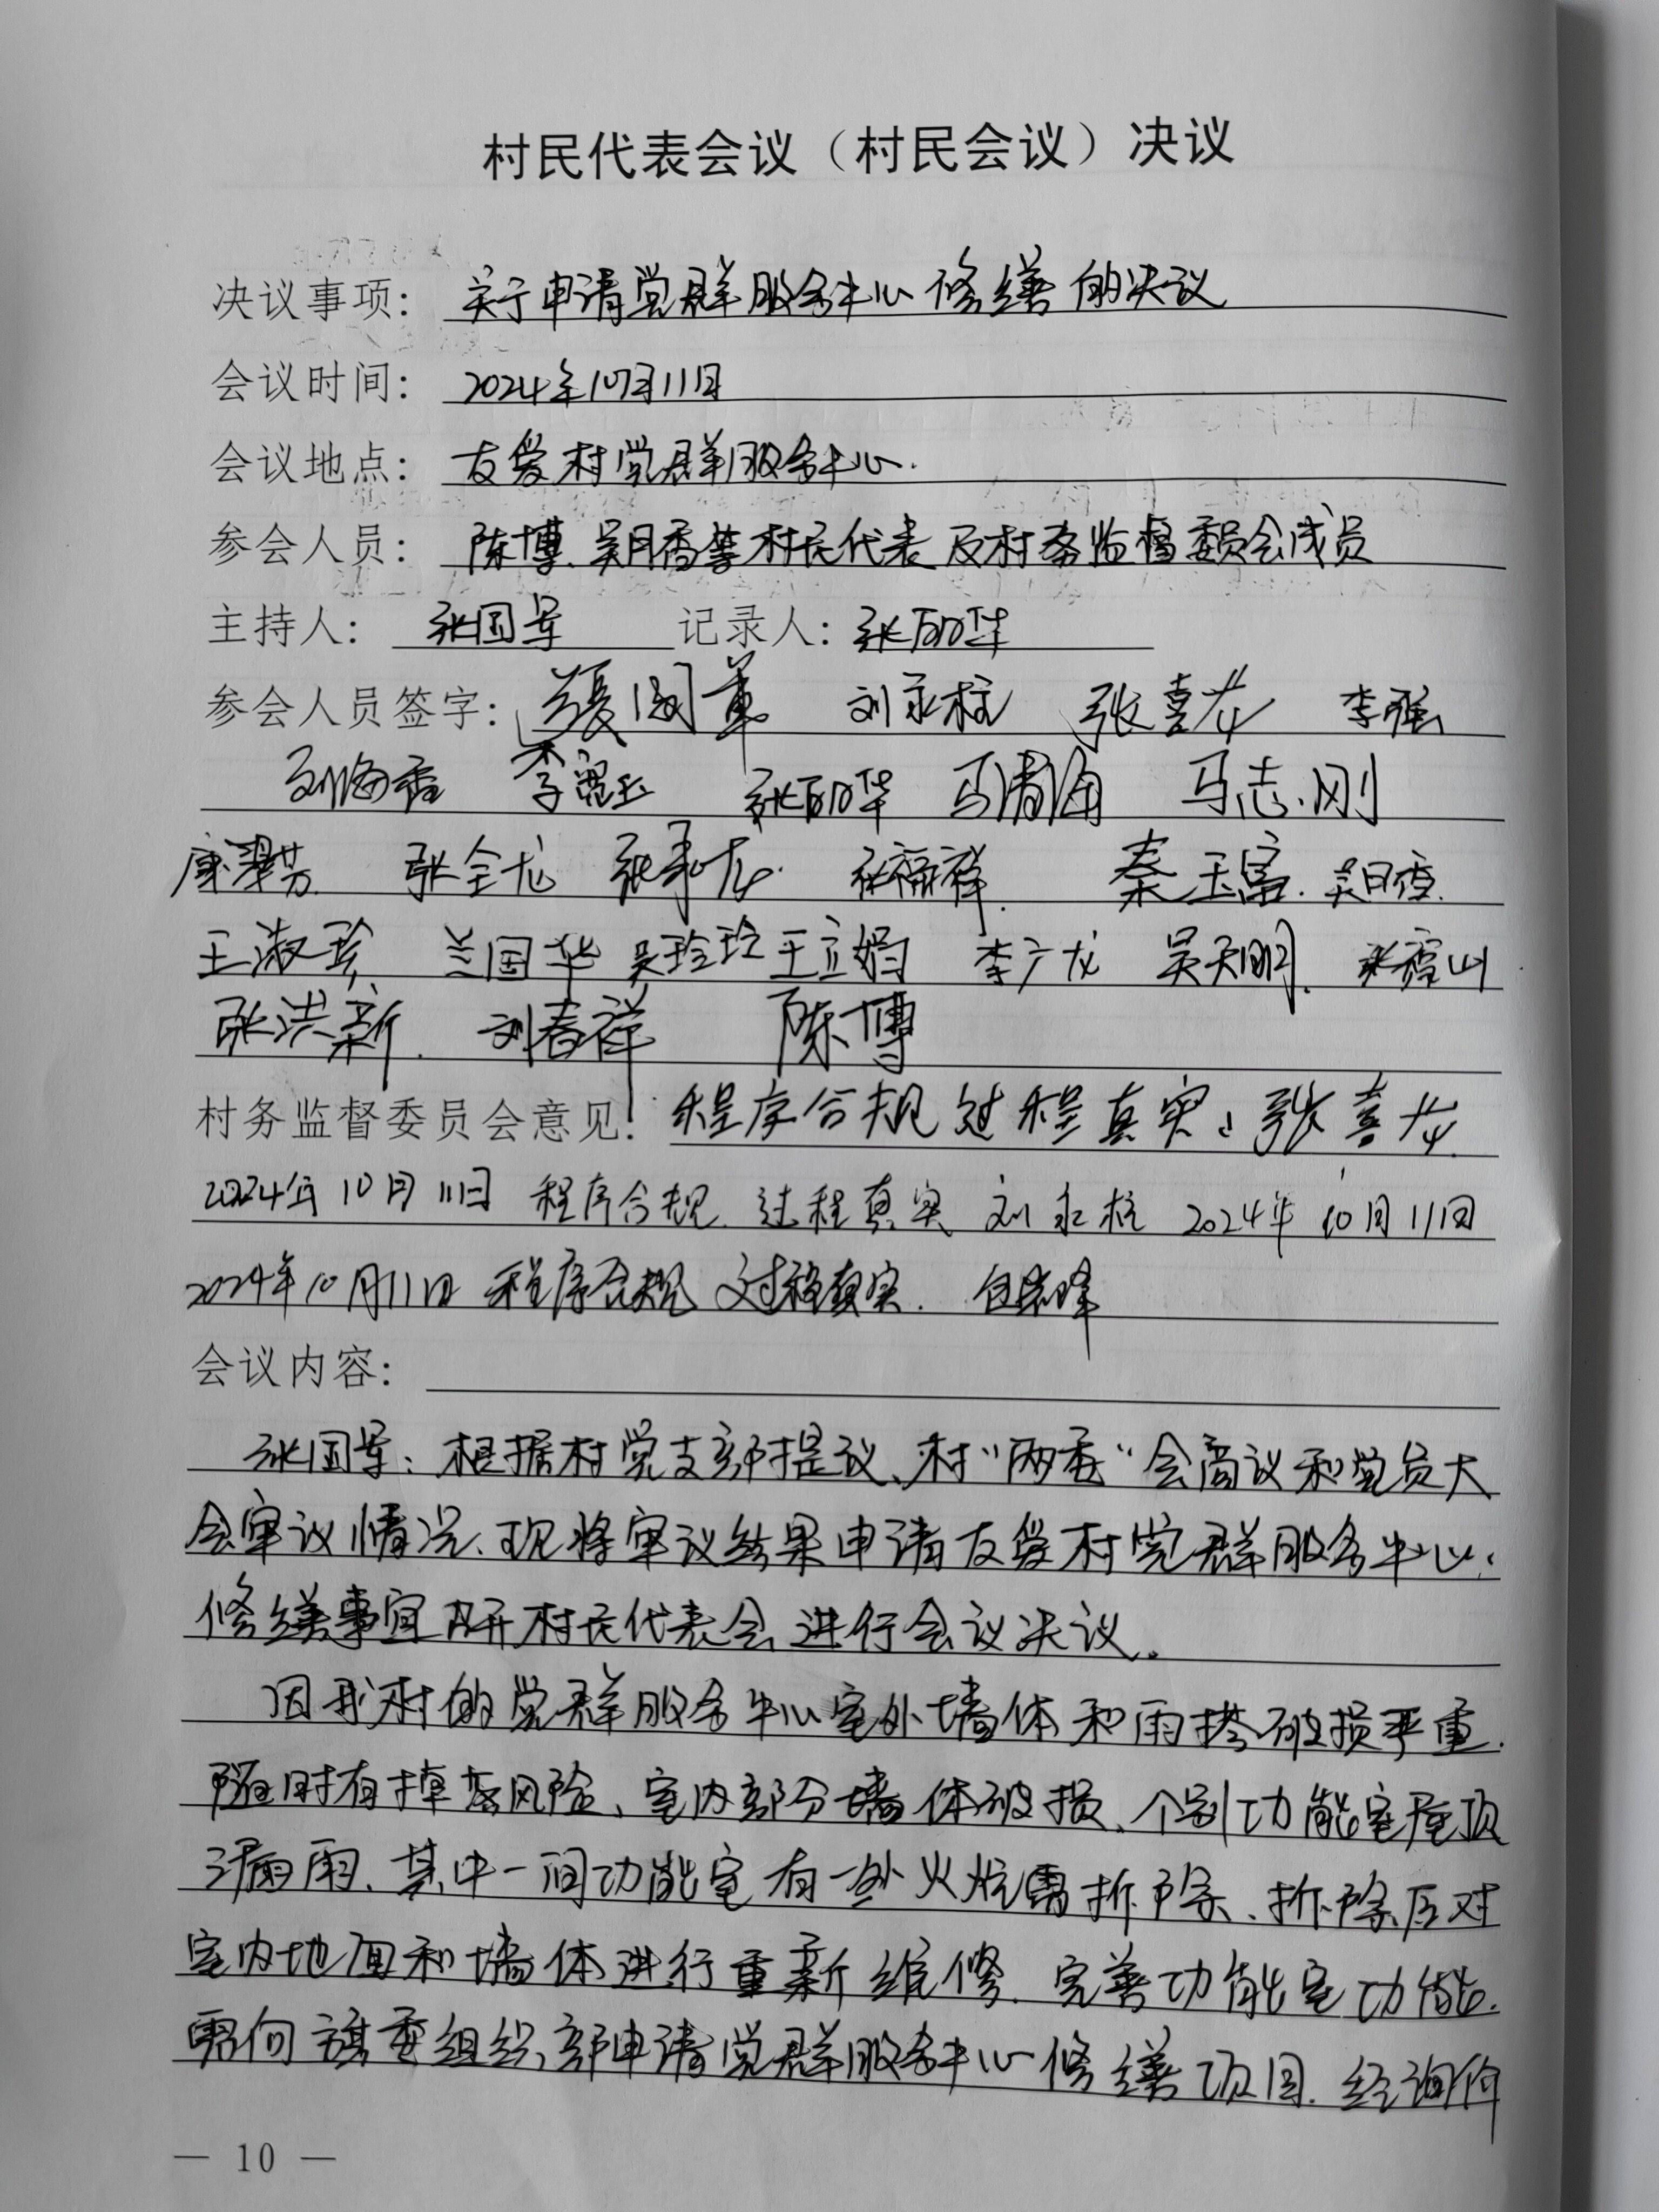 村民代表会议（村民会议）决议
决议事项：关于申请党群服务中心修缮的决议
会议时间：2024年10月11日
会议地点：友爱村党群服务中心.
参会人员：陈博、吴月香等村民代表及村务监督委员会成员
主持人：张国军 记录人：张丽华
参会人员签字： 刘永柱 张喜龙 李强
刘海香 张丽华 马清海 马志刚
康翠芳 张全龙 张福祥 秦玉富 吴月香
王淑珍 兰国华 吴玲玲 王立娟 李广龙 吴天明 张宝山
张洪新 刘春祥 陈博
村务监督委员会意见：程序合规 过程真实 张喜龙
2024年10月11日 程序合规 过程真实 刘永柱 2024年10月11日
2024年10月11日 程序合规 过程真实.
会议内容：
张国军：根据村党支部提议、村“两委”会商议和党员大
会审议情况、现将审议结果申请友爱村党群服务中心
修缮事宜召开村民代表会进行会议决议。
因我村的党群服务中心室外墙体和雨搭破损严重.
随时有掉落风险、室内部分墙体破损、个别功能室屋顶
漏雨、其中一间功能室有一处火炕需拆除、拆除后对
室内地面和墙体进行重新维修、完善功能室功能.
需向旗委组织部申请党群服务中心修缮项目. 经询价
— 10 —